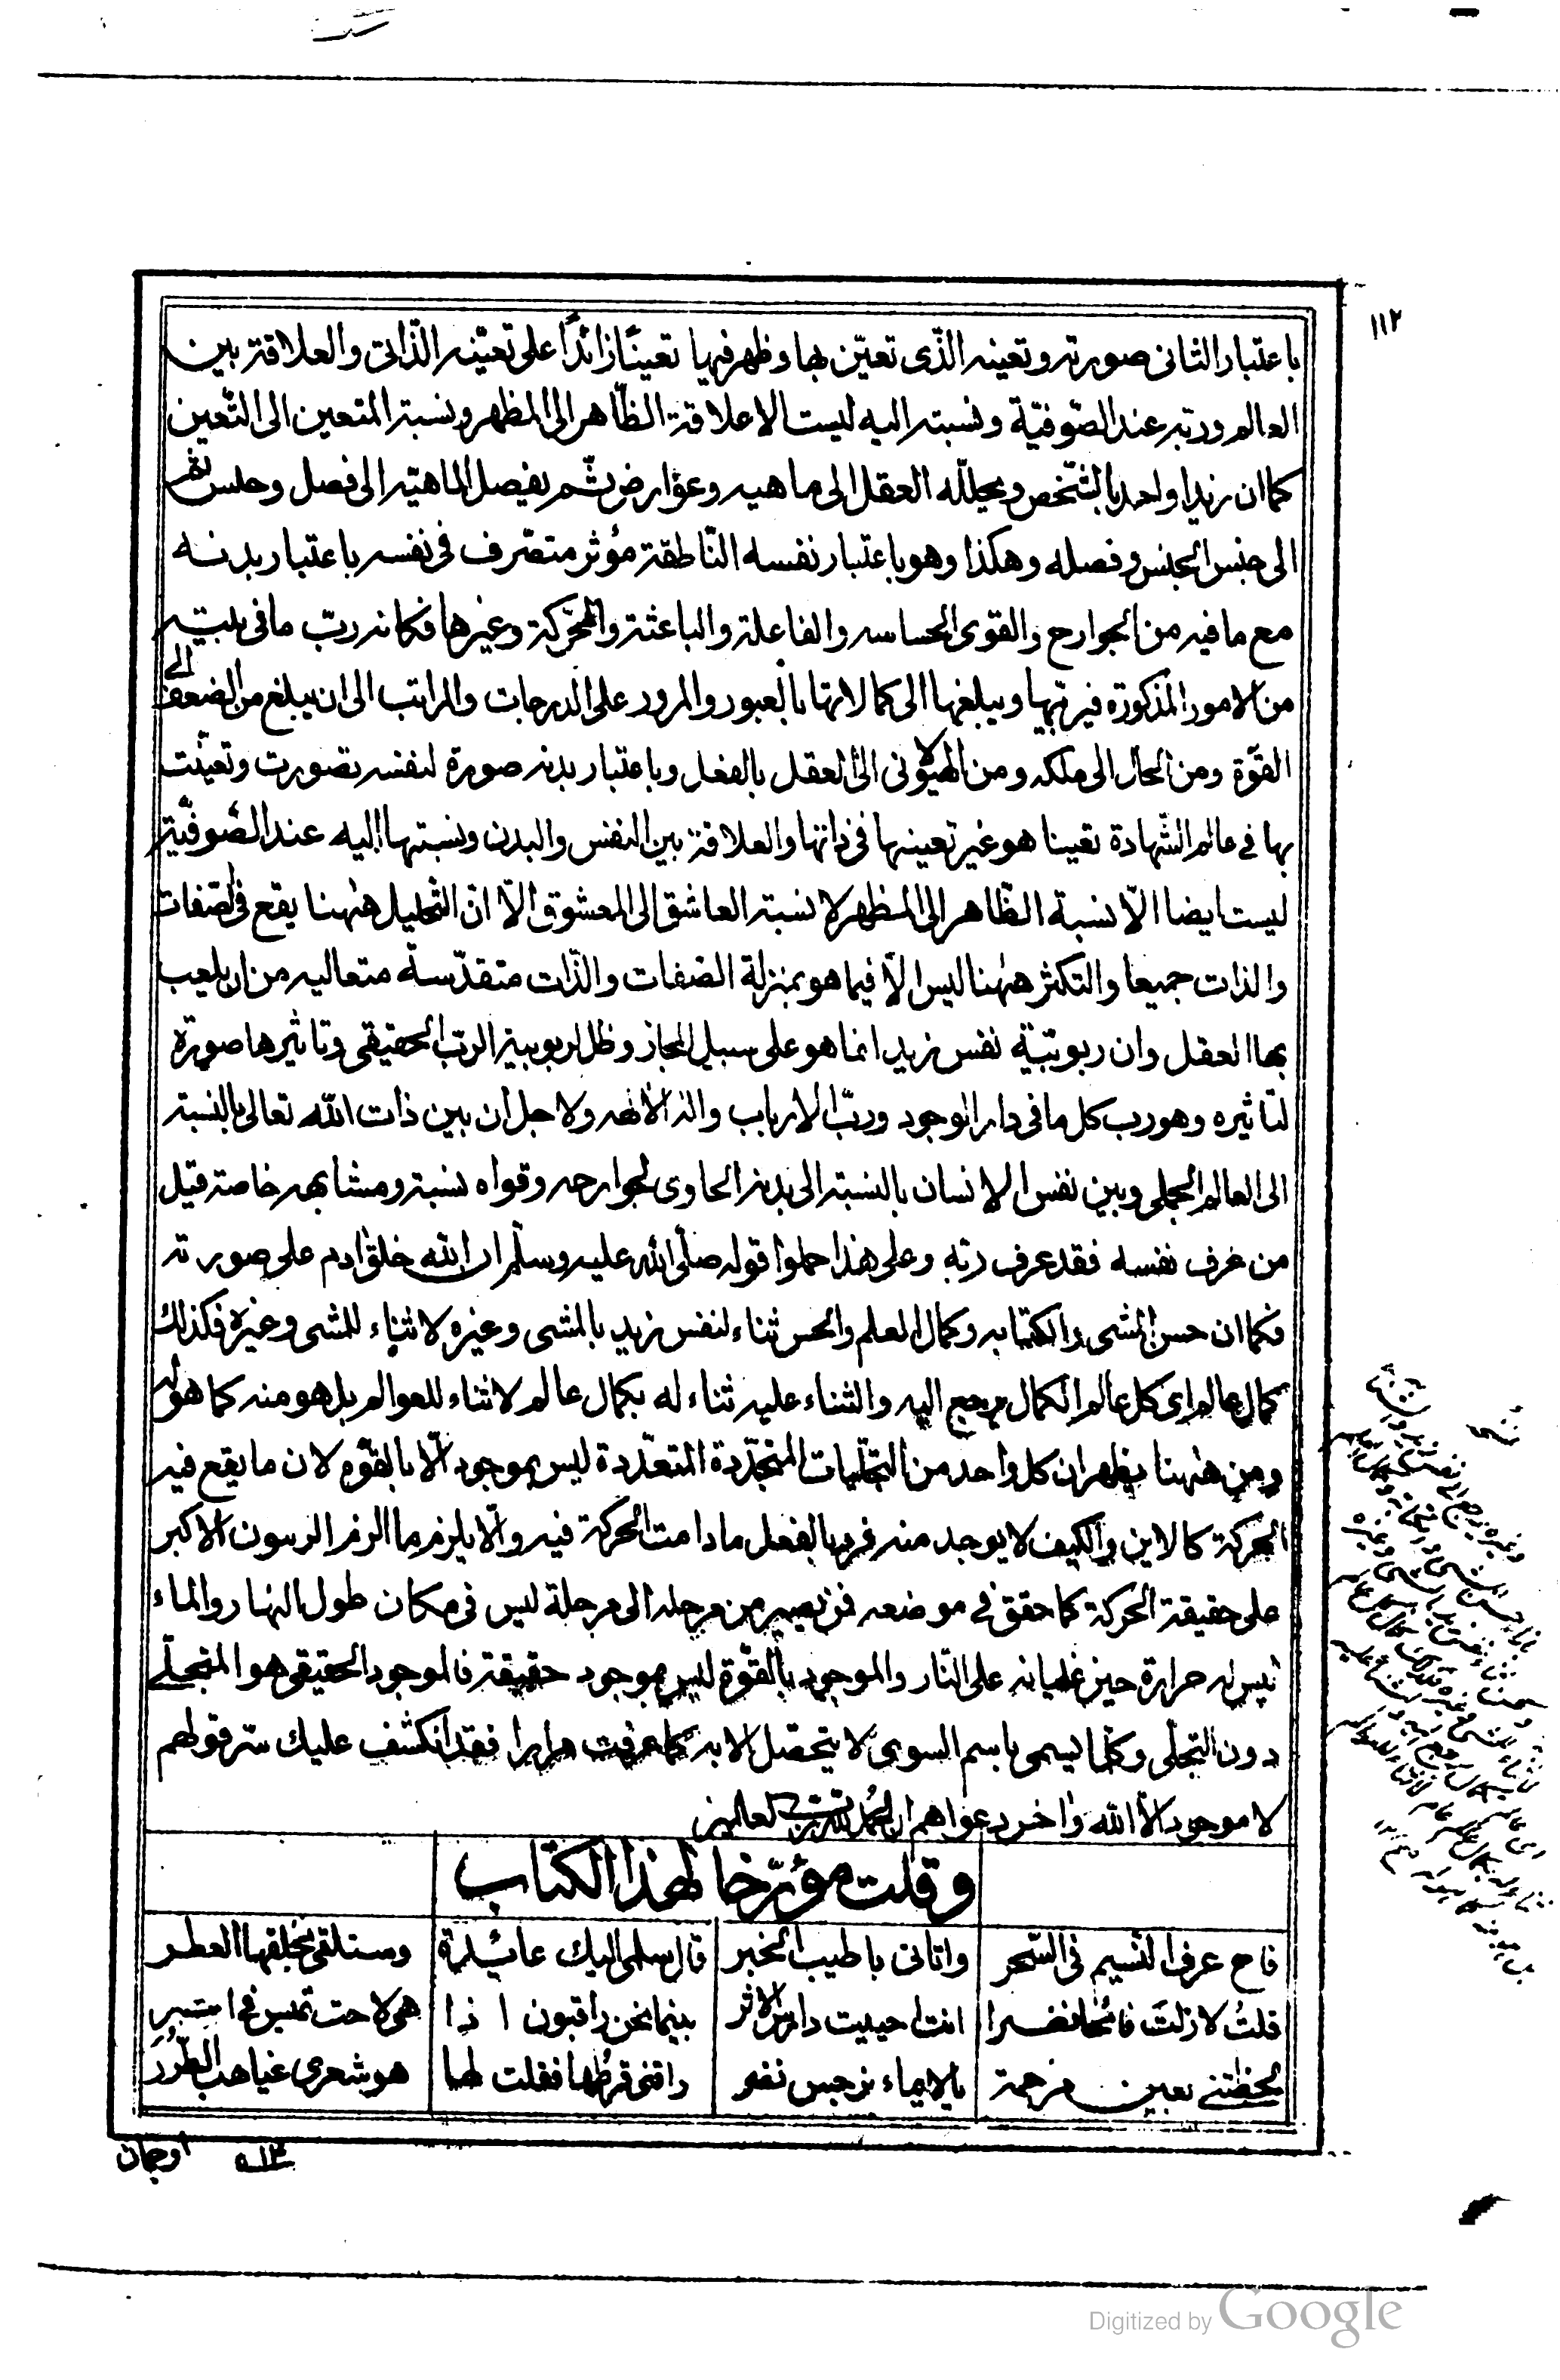 ١١٢
باعتبار الثانى صورته وتعينه الذى تعيّن بها وظهر فيها تعينًا زائدًا على تعيّنه الذّاتى والعلاقة بين
العالم وربّه عند الصّوفيّة ونسبته اليه ليست الا علاقة الظّاهر الى المظهر ونسبة المتعين الى التّعين
كما ان زيدا واحد بالشّخص ويحلّله العقل الى ماهيه وعوارض ثم يفصل الماهيّه الى فصل وجنس ثم
الى جنس الجنس وفصله وهكذا وهو باعتبار نفسه النّاطقة مؤثر متصّرف فى نفسه باعتبار بدنه
مع ما فيه من الجوارح والقوى الحساسه والفاعلة والباعثة والمحّركة وغيرها فكانه ربّ ما فى بيته
من الامور المذكورة فيربّيها ويبلغها الى كمالاتها بالعبور والمرور على الدرجات والمراتب الى ان يبلغ من الضعف الى
القوّة ومن الحال الى ملكه ومن الهيولانى الى العقل بالفعل وباعتبار بدنه صورة لنفسه تصورت وتعيّنت
بها فى عالم الشّهادة تعينا هو غير تعينها فى ذاتها والعلاقة بين النفس والبدن ونسبتها اليه عند الصّوفيّة
ليست ايضا الّا نسبة الظّاهر الى المظهر لا نسبة العاشق الى المعشوق الّا انّ التّحليل هٰهنا يقع فى الصّفات
والذات جميعا والتكثر هٰهنا ليس الّا فيما هو بمنزلة الصفات والذّات متقدّسة متعاليه من ان يلعب
بها العقل وان ربوبيّة نفس زيد انما هو على سبيل المجاز وظل لربوبية الرب الحقيقى وتاثيرها صورة
لتاثيره وهو رب كل ما فى دار الوجود وربّ الارباب واله الالهه ولاجل ان بين ذات الله تعالى بالنسبة
الى العالم الجملى وبين نفس الانسان بالنسبة الى بدنه الحاوى لجوارحه وقواه نسبة ومشابهه خاصة قيل
من عرف نفسه فقد عرف ربّه وعلى هذا حملوا قوله صلّى الله عليه وسلّم ان الله خلق ادم على صورته
فكما ان حسن المشى والكتابه وكمال العلم والحس ثناء لنفس زيد بالمشى وغيره لا ثناء للمشى وغيره فكذلك
كمال عالم اى كل عالم الكمال يرجع اليه والثناء عليه ثناء له بكمال عالم لا ثناء للعوالم بل هو منه كما هو له
ومن هٰهنا يظهر ان كل واحد من التجّليات المتجدّدة المتعدّدة ليس بموجود الّا بالقوّه لان ما يقع فيه
الحركة كالاين والكيف لا يوجد منه فرد بالفعل ما دامت الحركة فيه والّا يلزم ما الزم الرسون الاكبر
على حقيقة الحركة كما حقق فى موضعه فمن يصير من مرحله الى مرحلة ليس فى مكان طول النهار والماء
ليس له حرارة حين غليانه على النّار والموجود بالقوّة ليس بموجود حقيقة فالموجود الحقيقى هو المتجلّى
دون التجلّى وكلما يسمى باسم السوى لا يتحصّل الا به كما عرفت مرارا فقد انكشف عليك سّر قولهم
لا موجود الّا الله واٰخر دعواهم ان الحمد لله رب العالمين
وقلت مؤرّخا لهذا الكتاب
فاح عرف النسيم فى السّحر واتانى باطيب الخبر قال سلمى اليك عائدة وستلقى بخلقها العطر
قلتُ لا زلتَ فائحًا نضرا انت احييت دارس الاثر بينما نحن راقبون اذا هى لاحت تميس فى
لحظتنى بعين مرحمة بالايماء نرجس نضر راقنى قرطها فقلت لها هو شعرى غياهب الطّرر